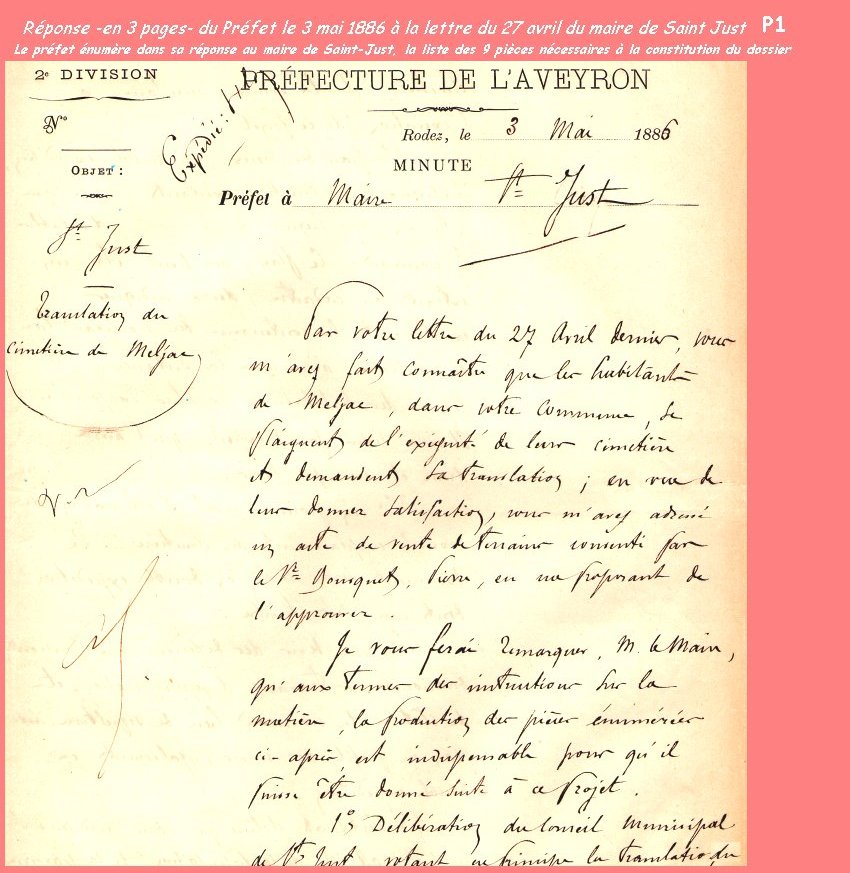 Réponse -en 3 pages- du Préfet le 3 mai 1886 à la lettre du 27 avril du maire de Saint Just P1
Le préfet énumère dans sa réponse au maire de Saint-Just, la liste des 9 pièces nécessaires à la constitution du dossier
2e DIVISION
PRÉFECTURE DE L'AVEYRON
No
Expédié :
Rodez, le 3 Mai 1886
OBJET :
MINUTE
Préfet à Maire St Just
St Just
Translation du
cimetière de Meljac
Par votre lettre du 27 Avril dernier, vous
m'avez fait connaître que les habitants
de Meljac, dans votre Commune, se
plaignent de l'exiguité de leur cimetière
et demandent sa translation ; en vue de
leur donner satisfaction, vous m'avez adressé
un acte de vente de terrains consenti par
le Sr Bousquet, Pierre, en me proposant de
l'approuver.
Je vous ferai remarquer, M. le Maire,
qu'aux termes des instructions sur la
matière, la production des pièces énumérées
ci-après, est indispensable pour qu'il
puisse être donné suite à ce projet.
1o Délibération du Conseil Municipal
de St Just votant en principe la translation du